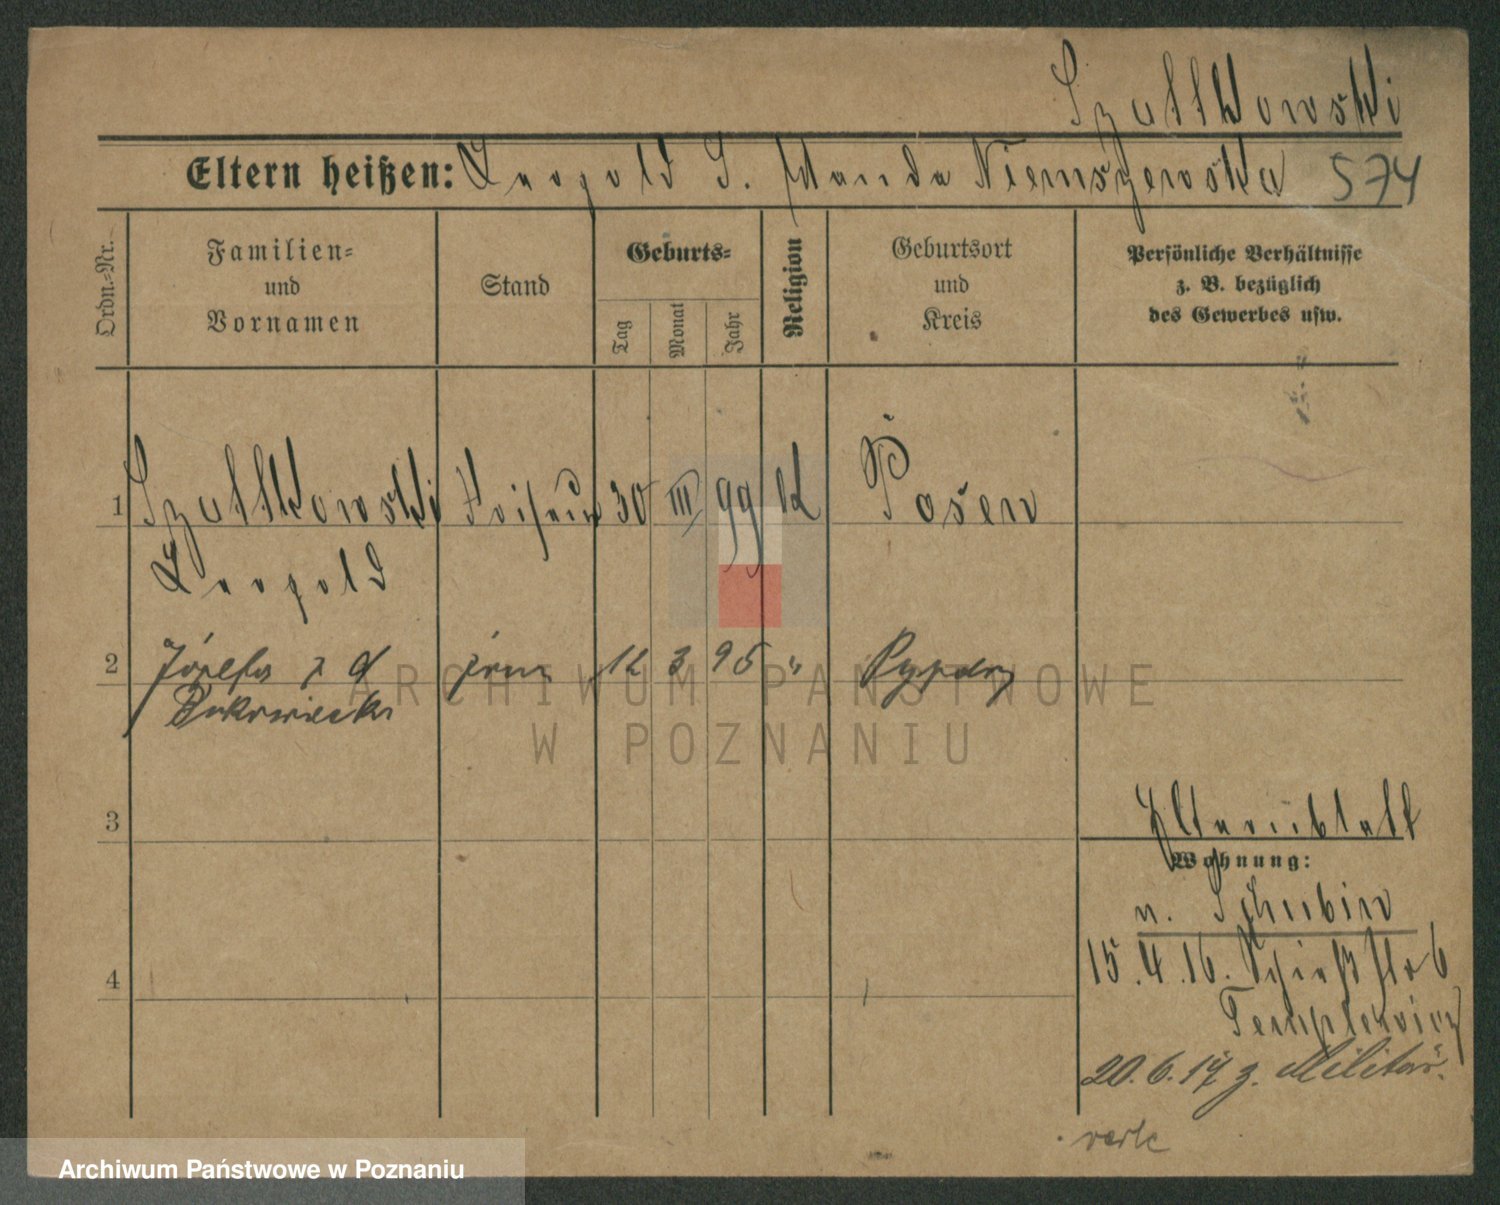 Szulkowski
Eltern heißen: Leopold S. Wanda Niemszewska 574
Ordn.=Nr.
Familien=
und
Vornamen
Stand
Geburts=
Tag
Monat
Jahr
Religion
Geburtsort
und
Kreis
Persönliche Verhältnisse
z. B. bezüglich
des Gewerbes usw.
1 30 III 99 K Posen
Leopold
2 Józefa z d żona 12 3 95 "
3
4
Wohnung:
n. Schubin
15.4.16.
Templewicz
20.6.17 z. Militär.
verte
ARCHIWUM PAŃSTWOWE
W POZNANIU
Archiwum Państwowe w Poznaniu